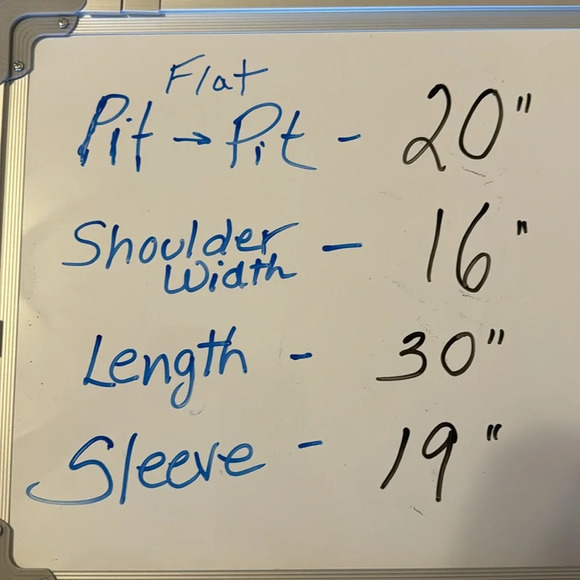 Flat
Pit → Pit - 20"
Shoulder Width - 16"
Length - 30"
Sleeve - 19"